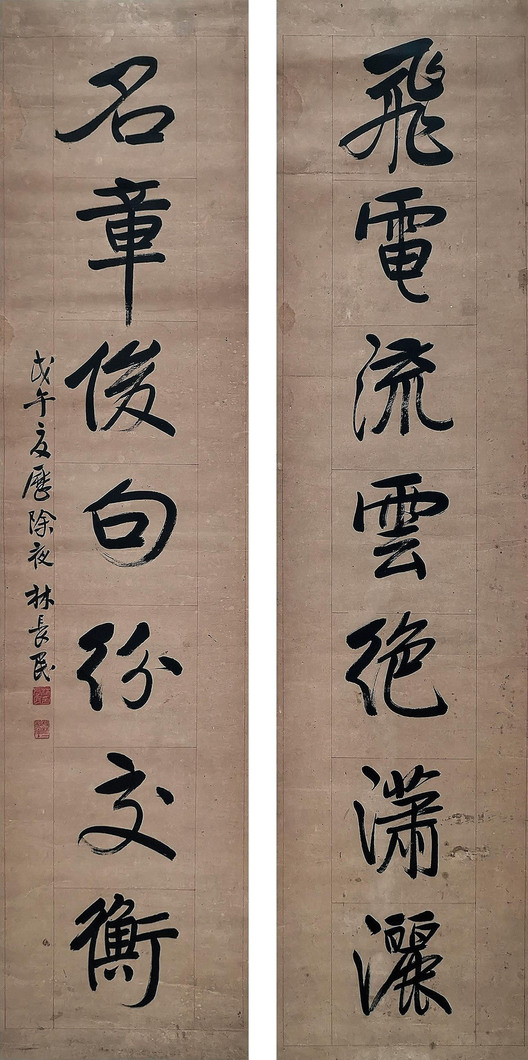 飛電流雲絶瀟灑
名章俊句紛交衡
戊午夏歷除夜 林長民